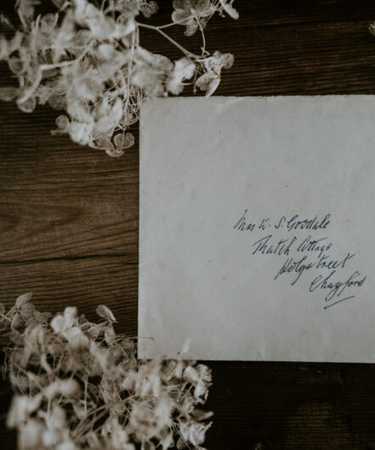 Mrs W. S. Goodale
Thatch Cottage
Holystreet
Chagford